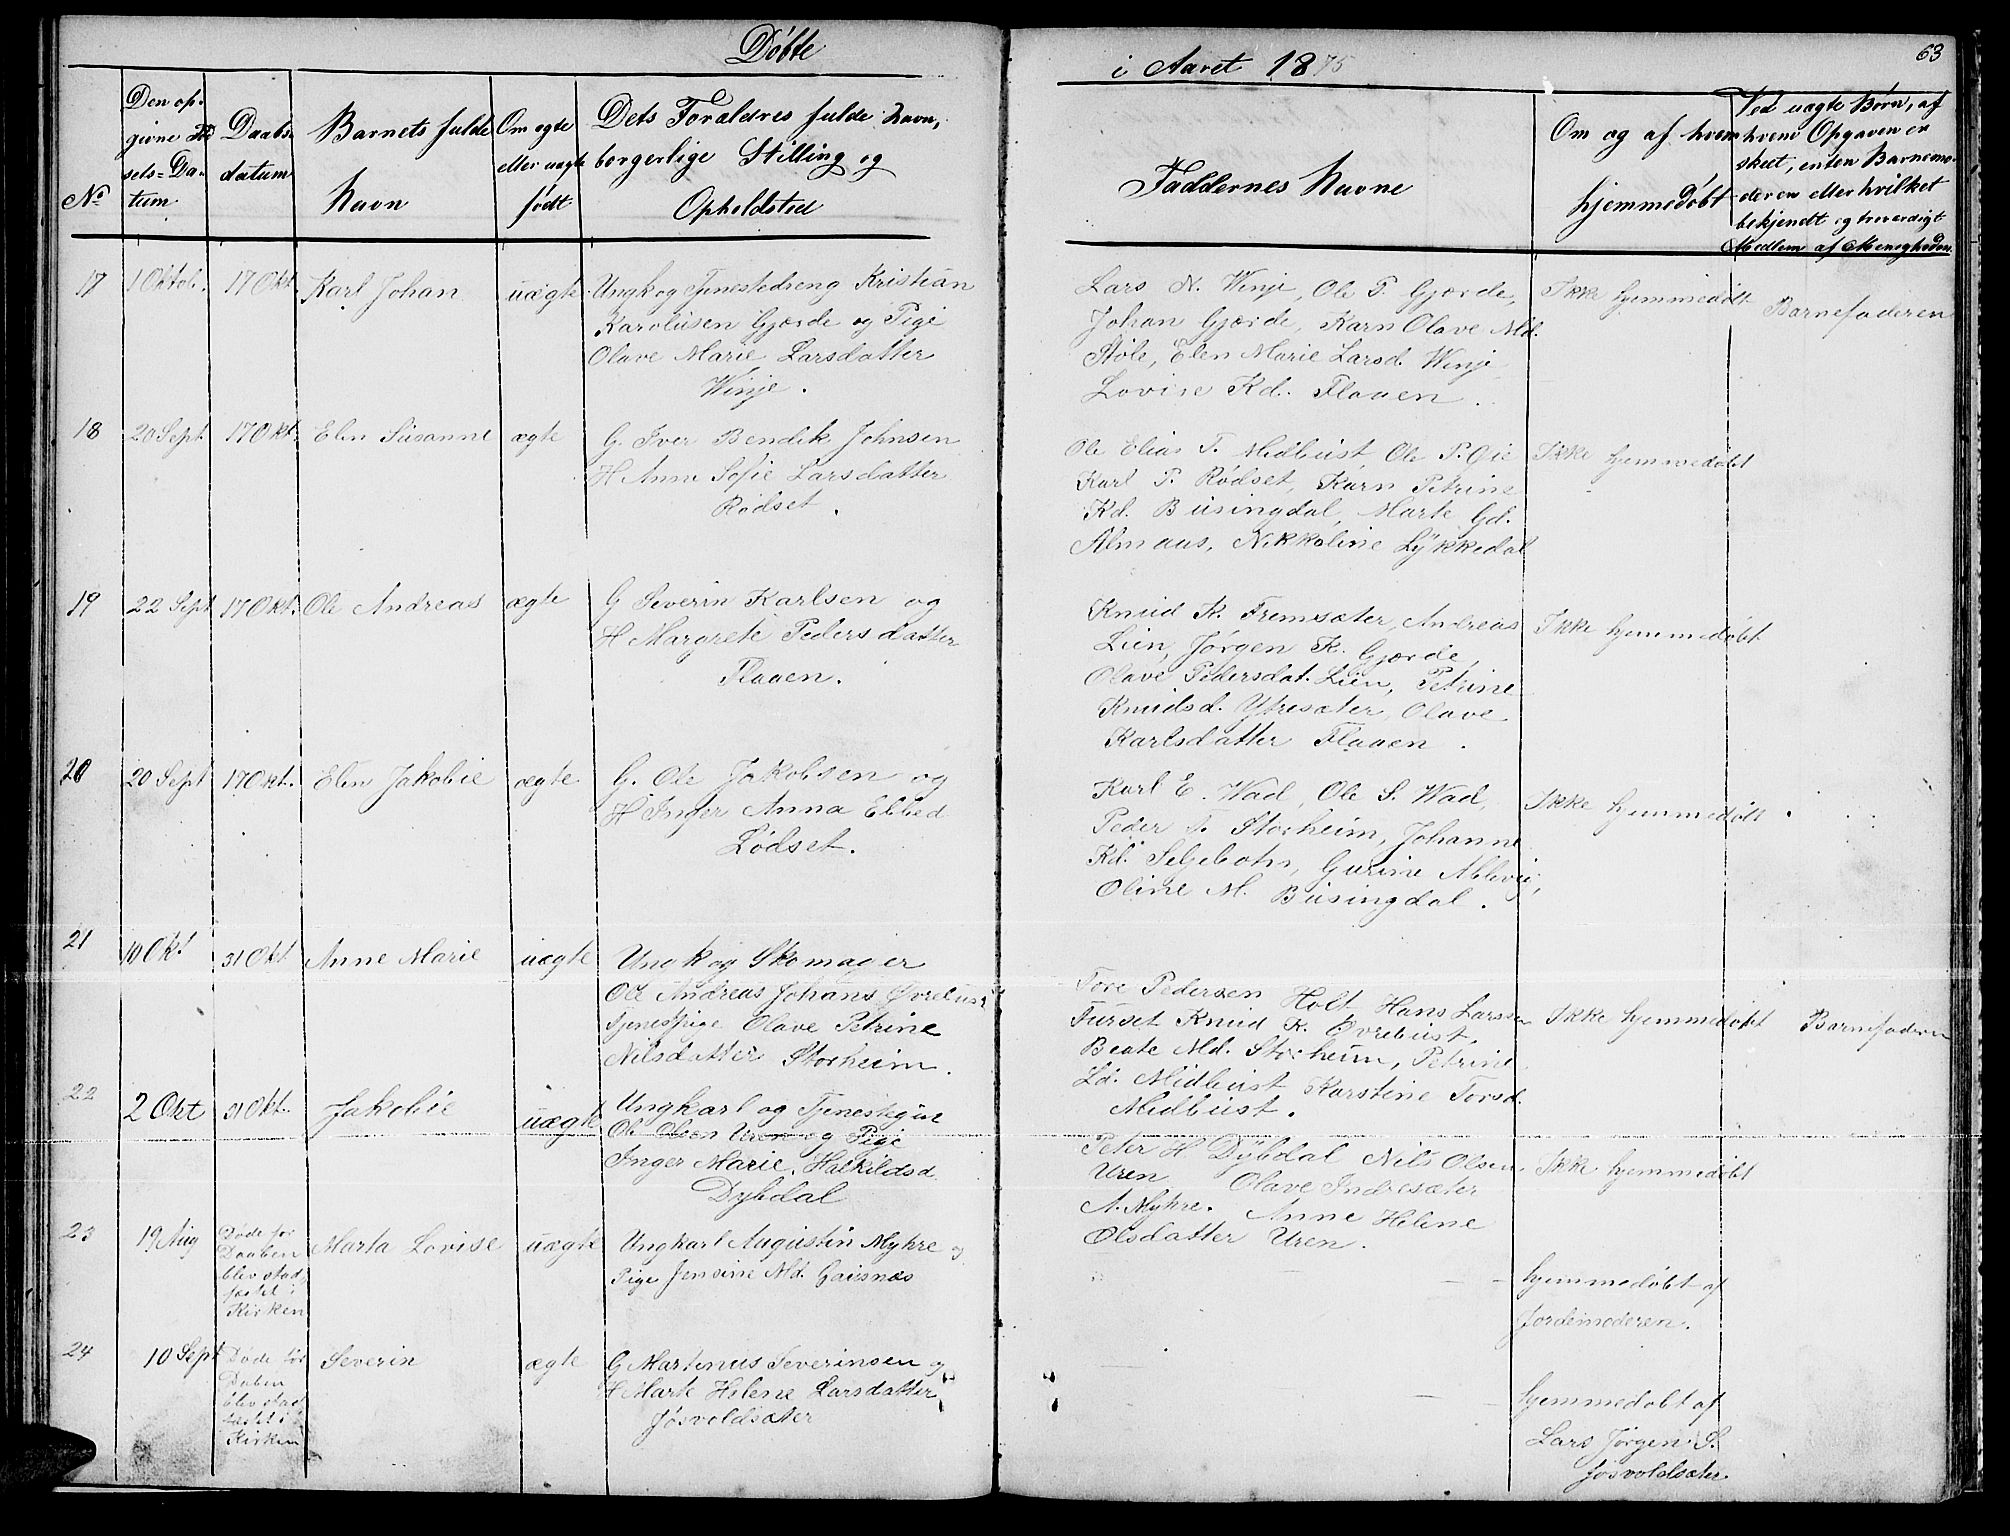 Døbte
i Aaret 1875
63
No
Den op-
givne Fød
sels-Da-
tum
Daabs
datum
Barnets fulde
Navn
Om ægte
eller uægte
født
Dets Forældres fulde Navn,
borgerlige Stilling og
Opholdsted
Faddernes Navne
Om og af hvem
hjemmedøbt
Ved uægte Børn, af
hvem Opgaven er
skeet, enten Barnemo-
deren eller hvilket
bekjendt og troværdigt
Medlem af Menigheden
17 1 Oktob. 17 Okt Karl Johan uægte Ungk og Tjenestedreng Kristian
Karolusen Gjærde og Pige
Olave Marie Larsdatter
Winje.
Lars N. Winje, Ole P. Gjærde,
Johan Gjærde, Karn Olave Md.
Støle, Elen Marie Larsd. Winje
Lovise Kd. Flaaen.
Ikke hjemmedøbt Barnefaderen
18 20 Sept 17 Okt. Elen Susanne ægte G. Iver Bendik Johnsen
H Anne Sofie Larsdatter
Rødset.
Ole Elias T. Midbust, Ole P. Gie
Karl P. Rødset, Karn Petrine
Kd. Busingdal, Marte Gd.
Almaas, Nikkoline Lykkedal
Ikke hjemmedøbt
19 22 Sept 17 Okt. Ole Andreas ægte G Severin Karlsen og
H Margrete Pedersdatter
Flaaen.
Knud K. Fremsæter, Andreas
Lien, Jørgen K. Gjærde,
Olave Pedersdat. Lien, Petrine
Knudsd. Ytresæter, Olave
Karlsdatter Flaaen.
Ikke hjemmedøbt
20 20 Sept 17 Okt. Elen Jakobie ægte G. Ole Jakobsen og
H Inger Anna Ebbed
Lødset.
Karl E. Wad, Ole S. Wad,
Peder T. Storheim, Johanne
Kd. Seljebotn, Gurine
Oline M. Busingdal.
Ikke hjemmedøbt
21 10 Okt 31 Okt Anne Marie uægte Ungk og Skomager
Ole Andreas Johans Øvrebust
Tjenestpige Olave Petrine
Nilsdatter Storheim.
Tore Pedersen Holt Hans Larsen
Furset Knud K. Øvrebust,
Beate Md. Storheim, Petrine
Ld. Midbust Karstine Torsd.
Midbust.
Ikke hjemmedøbt Barnefaderen
22 2 Okt 31 Okt. Jakobie uægte Ungkarl og Tjenestegut
Ole Olsen Uren og Pige
Inger Marie Halkildsd
Dybdal
Peter H Dybdal Nils Olsen
Uren Olave Indresæter
A. Myhre. Anne Helene
Olsdatter Uren.
Ikke hjemmedøbt
23 19 Aug Døde før
Daaben
blev stad
fæstet i
Kirken
Marta Lovise uægte Ungkarl Augustin Myhre og
Pige Jensine Md. Gausnæs
hjemmedøbt af
Jordemoderen.
24 10 Sept Døde før
Daben
blev stad
fæstet i
Kirken
Severin ægte G Martinus Severinsen og
H Marte Helene Larsdatter
Jøsvoldsæter
hjemmedøbt af
Lars Jørgen S.
Jøsvoldsæter